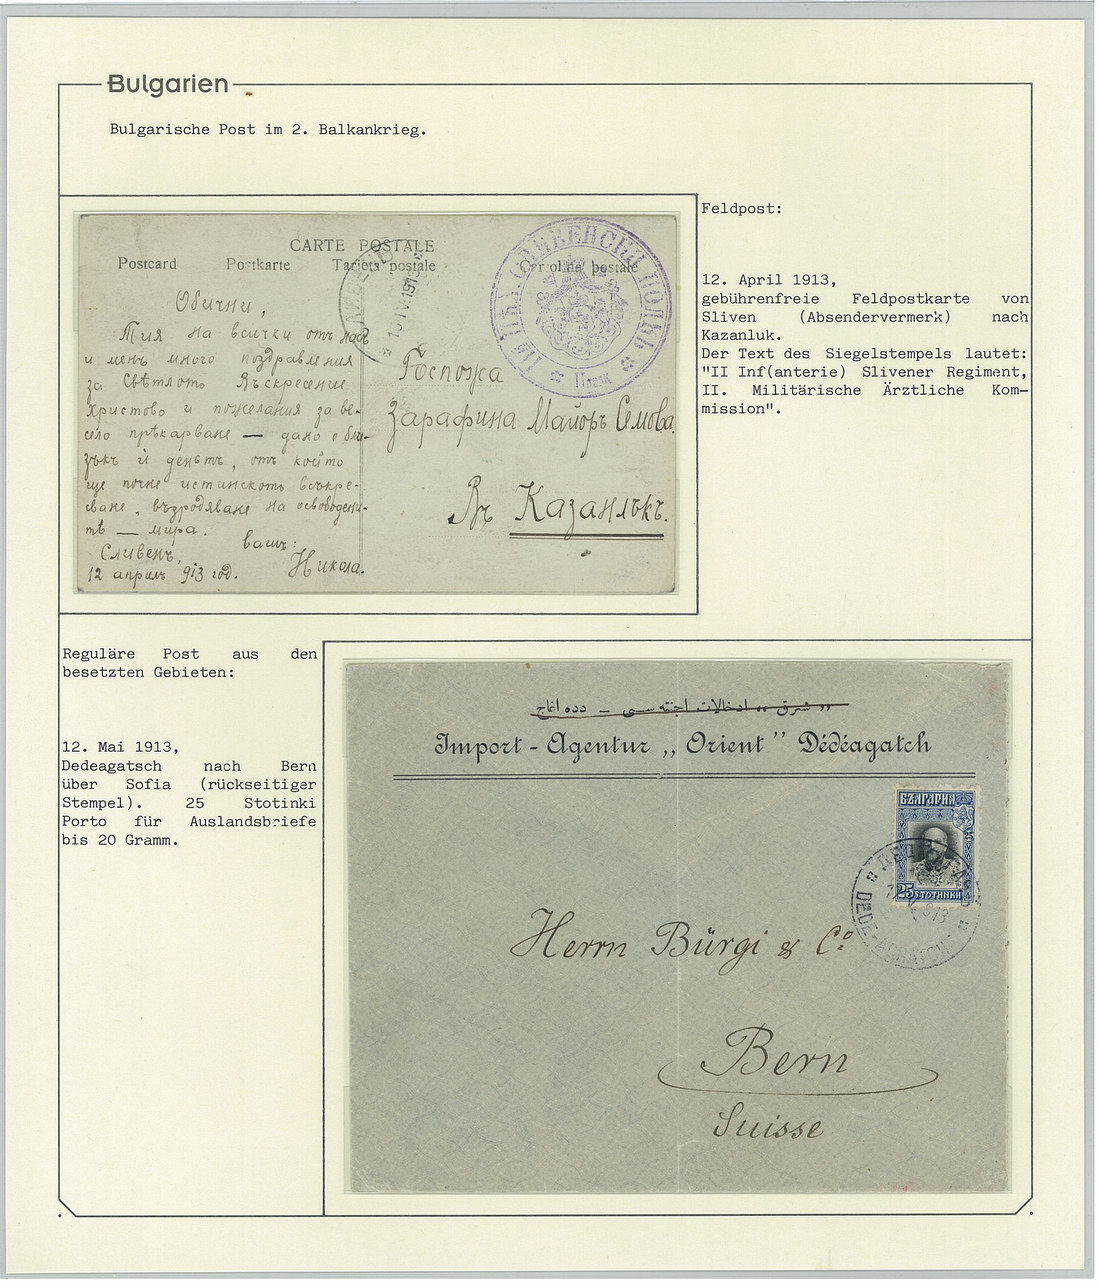 Bulgarien
Bulgarische Post im 2. Balkankrieg.
Feldpost:
12. April 1913,
gebührenfreie Feldpostkarte von
Sliven (Absendervermerk) nach
Kazanluk.
Der Text des Siegelstempels lautet:
"II Inf(anterie) Slivener Regiment,
II. Militärische Ärztliche Kom-
mission".
CARTE POSTALE
Postcard Postkarte Tarjeta postale postale
Обични,
Тия на всички отъ насъ
и менъ много поздравления
за Свѣтлото Възкресение
Христово и пожелания за ве-
село прѣкарване — дано е бли-
зъкъ и деньтъ, отъ който
ще почне истинскотъ възкре-
сване, възродяване на освободени-
тѣ — мира.
Сливенъ, вашъ:
12 априлъ 913 год. Никола.
Госпожа
Зарафина Майоръ Семова.
Въ Казанлъкъ.
СЛИВЕНСКИ ПОЛКЪ
Reguläre Post aus den
besetzten Gebieten:
12. Mai 1913,
Dedeagatsch nach Bern
über Sofia (rückseitiger
Stempel). 25 Stotinki
Porto für Auslandsbriefe
bis 20 Gramm.
Import-Agentur „Orient” Dédéagatch
БЪЛГАРИЯ
25
25 СТОТИНКИ
Herrn Bürgi & Cº
Bern
Suisse